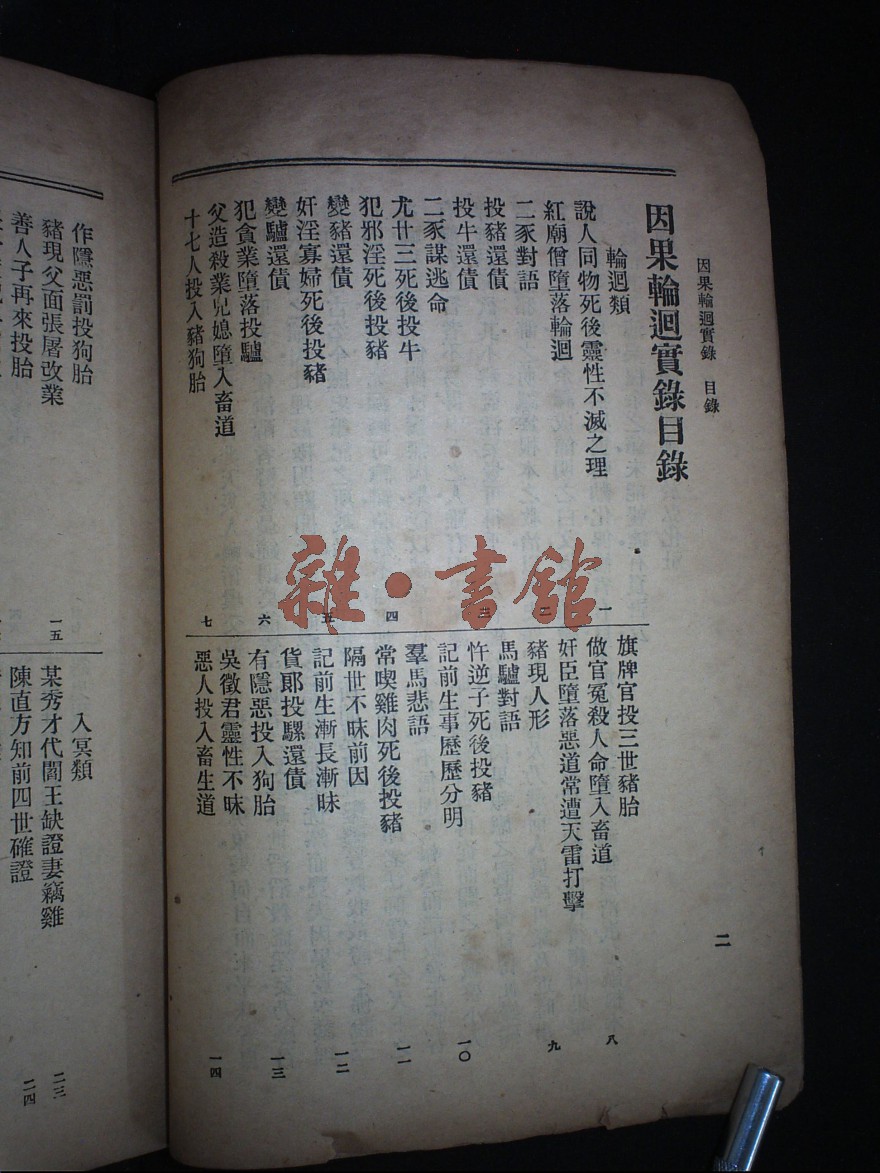 因果輪迴實錄 目錄
二
因果輪迴實錄目錄
輪迴類
說人同物死後靈性不滅之理 一
紅廟僧墮落輪迴 二
二豕對語
投豬還債 三
投牛還債
二豕謀逃命
尤廿三死後投牛 四
犯邪淫死後投豬
變豬還債 五
奸淫寡婦死後投豬
變驢還債 六
犯貪業墮落投驢
父造殺業兒媳墮入畜道
十七人投入豬狗胎 七
旗牌官投三世豬胎 八
做官冤殺人命墮入畜道
奸臣墮落惡道常遭天雷打擊 九
豬現人形
馬驢對語
忤逆子死後投豬 一〇
記前生事歷歷分明
羣馬悲語 一一
常喫雞肉死後投豬
隔世不昧前因 一二
記前生漸長漸昧
貨郎投騾還債 一三
有隱惡投入狗胎
吳徵君靈性不昧
惡人投入畜生道 一四
作隱惡罰投狗胎
豬現父面張屠改業 一五
善人子再來投胎
入冥類
某秀才代閻王缺證妻竊雞 二三
陳直方知前四世確證 二四
雜·書館